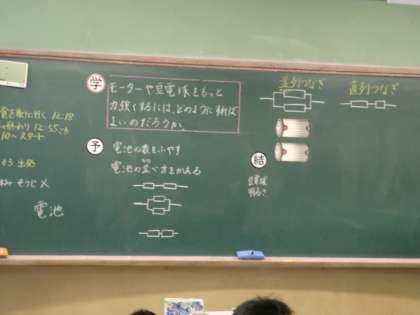 学
モーターや豆電球をもっと
力強くするには、どのようにすれば
よいのだろうか。
予
電池の数をふやす
電池の並べ方をかえる
並列つなぎ
直列つなぎ
結
豆電球
明るさ
12:18
12:55
10〜スタート
そう 出発
そうじ×
電池